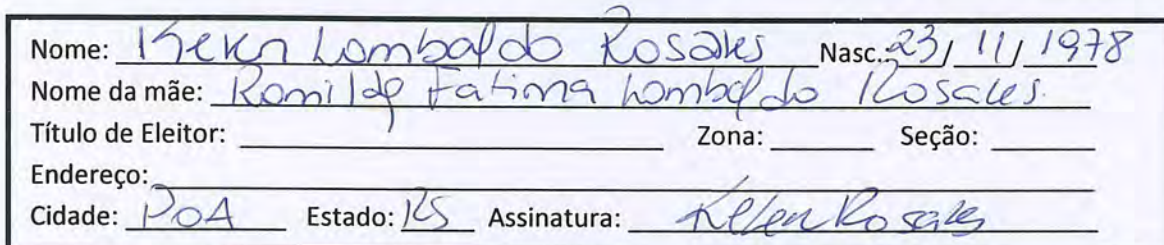 Nome: Kelen Lombaldo Rosales Nasc.: 23/ 11/ 1978
Nome da mãe: Romilda Fatima Lombaldo Rosales.
Título de Eleitor: Zona: Seção:
Endereço:
Cidade: POA Estado: RS Assinatura: Kelen Rosales